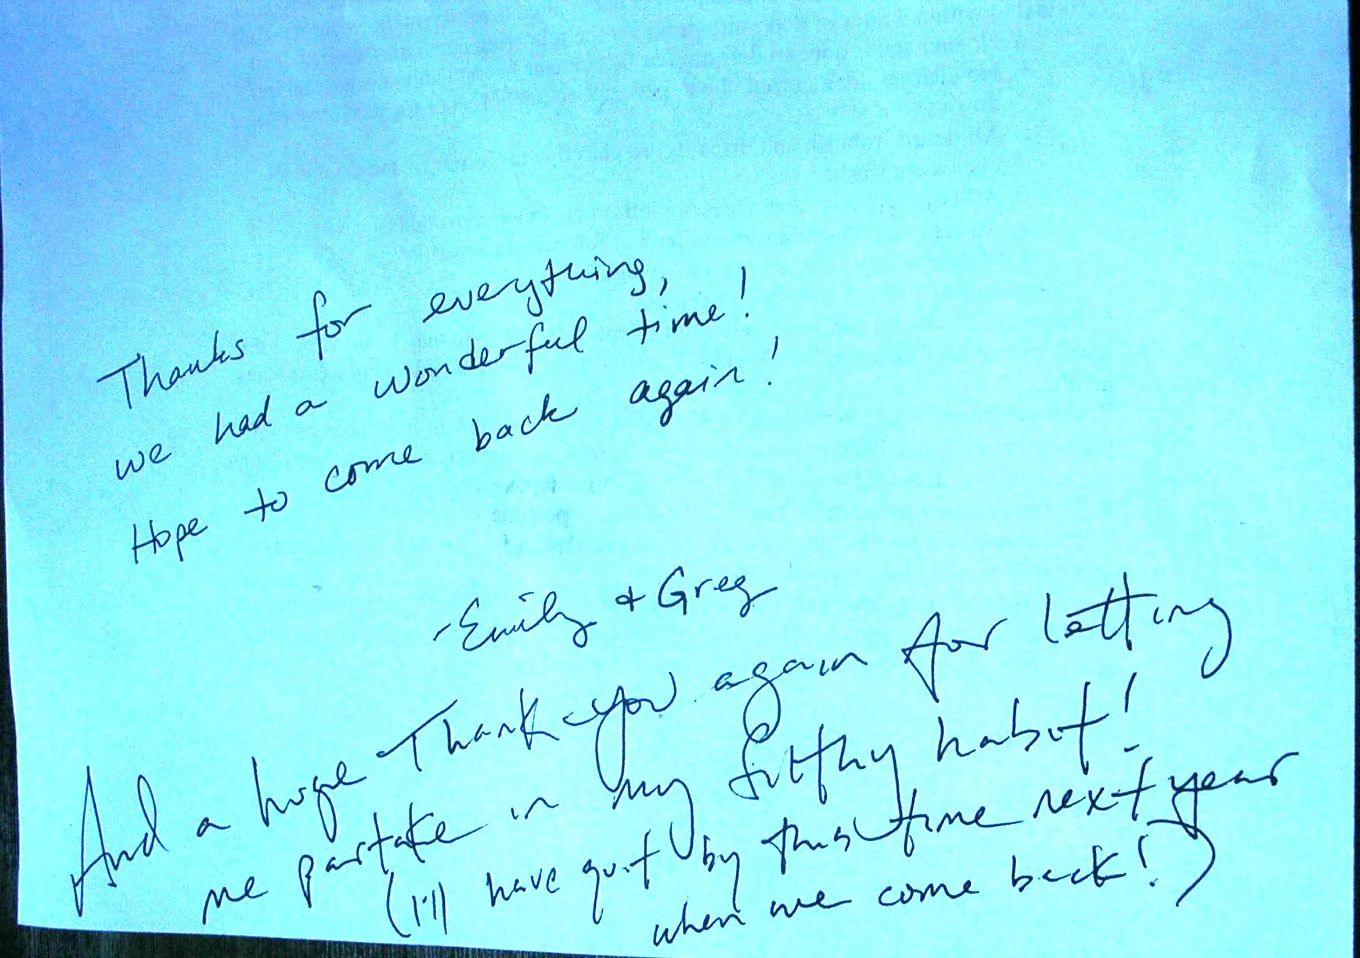 Thanks for everything,
we had a wonderful time!
Hope to come back again!
-Emily + Greg
And a huge Thank you again for letting
me partake in my filthy habit!
(I'll have quit by this time next year
when we come back!)